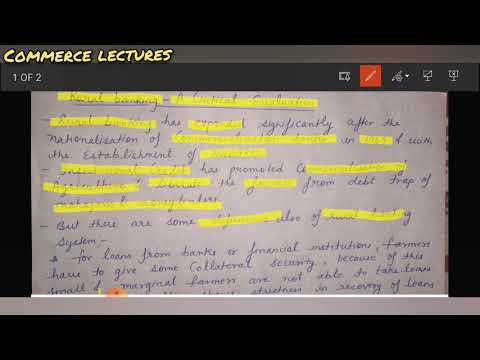 COMMERCE LECTURES
1 OF 2
Rural banking - A Critical Evaluation
- Rural banking has expanded significantly after the
nationalisation of Commercial banks in 1969 & with
the Establishment of
- Institutional Credit has promoted Commercialisation of
Agriculture & the farmers from debt trap of
- But there are some also of rural banking
System:-
for loans from banks or financial institution, farmers
have to give some Collateral security, because of this
small & marginal farmers are not able to take loans
strictness in recovery of loans